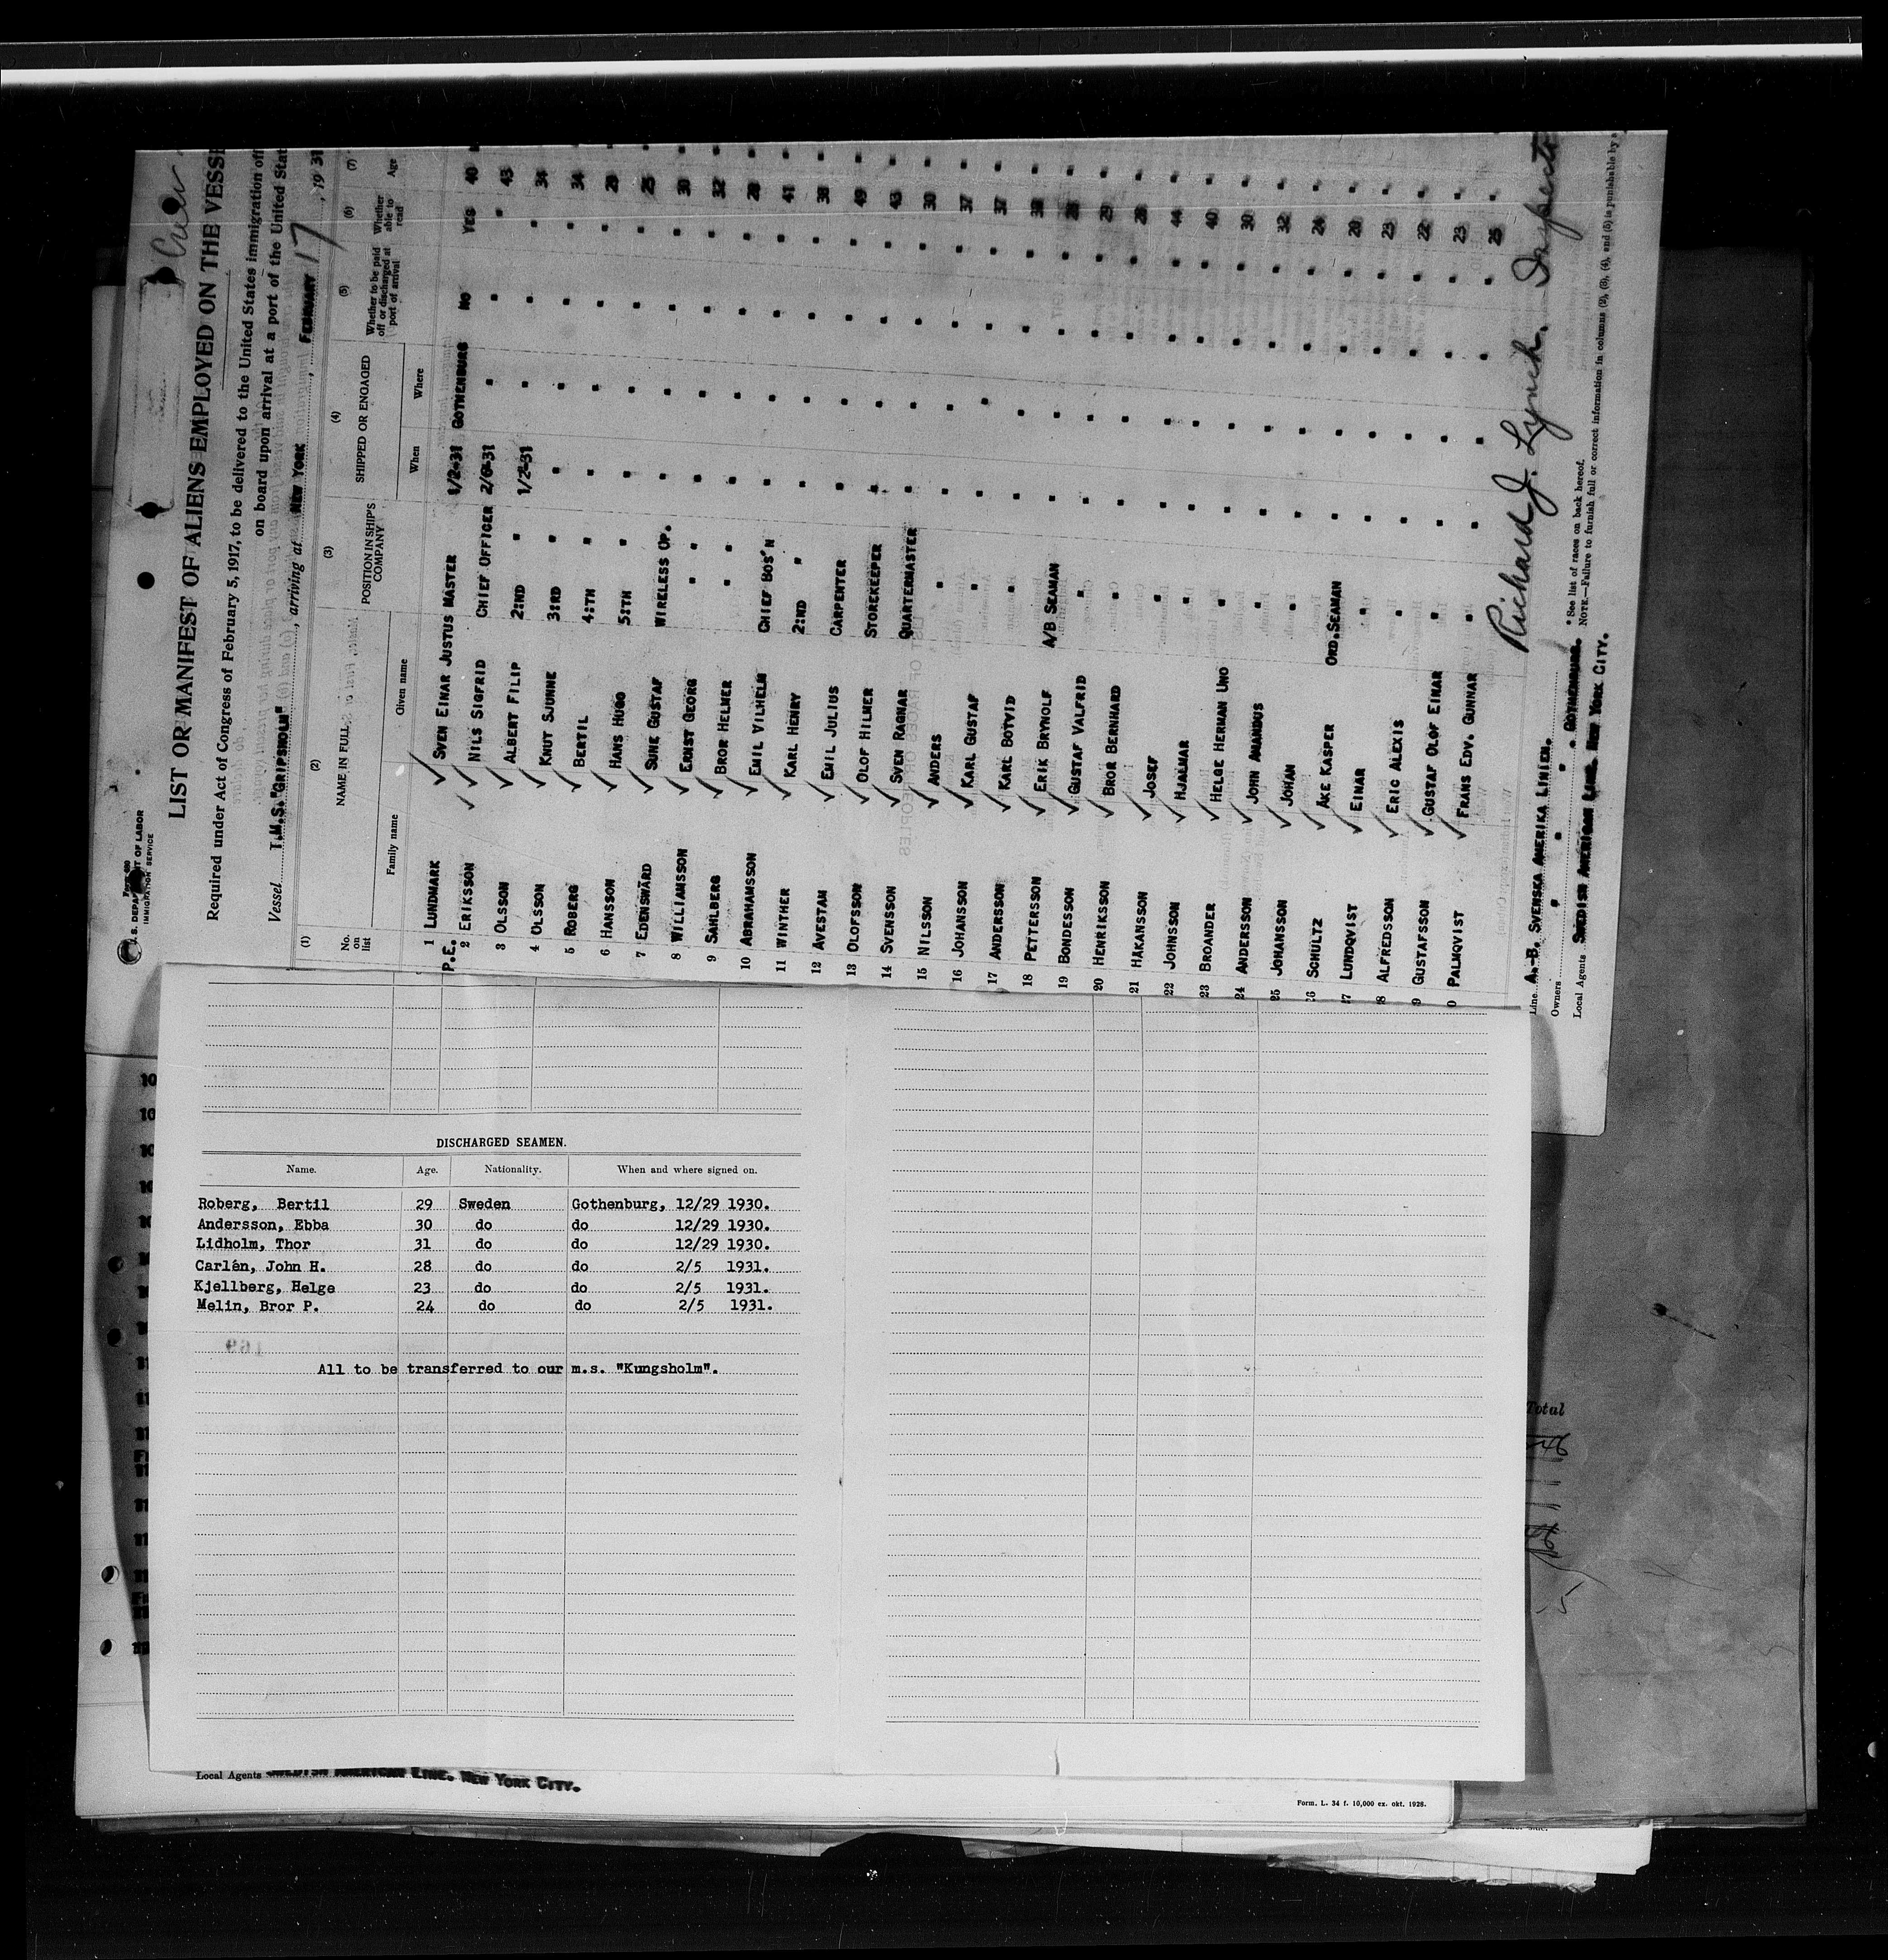 Crew
Form 680
U.S. DEPARTMENT OF LABOR
IMMIGRATION SERVICE
LIST OR MANIFEST OF ALIENS EMPLOYED ON THE VESSE
Required under Act of Congress of February 5, 1917, to be delivered to the United States immigration off
on board upon arrival at a port of the United Stat
Vessel T.M.S."GRIPSHOLM", arriving at NEW YORK, FEBRUARY 17, 1931
(1) (2) (3) (4) (5) (6) (7)
No. on list NAME IN FULL POSITION IN SHIP'S COMPANY SHIPPED OR ENGAGED Whether to be paid off or discharged at port of arrival Whether able to read Age
Family name Given name When Where
1 LUNDMARK SVEN EINAR JUSTUS MASTER 1/2-31 GOTHENBURG NO YES 40
P.E. 2 ERIKSSON NILS SIGFRID CHIEF OFFICER 2/6-31 " " " 43
3 OLSSON ALBERT FILIP 2:ND " 1/2-31 " " " 34
4 OLSSON KNUT SJUNNE 3:RD " " " " " 34
5 ROBERG BERTIL 4:TH " " " " " 29
6 HANSSON HANS HUGO 5:TH " " " " " 25
7 EDENSWÄRD SUNE GUSTAF WIRELESS OP. " " " " 30
8 WILLIAMSSON ERNST GEORG " " " " " " 32
9 SAHLBERG BROR HELMER " " " " " " 28
10 ABRAHAMSSON EMIL VILHELM CHIEF BOS'N " " " " 41
11 WINTHER KARL HENRY 2:ND " " " " " 38
12 AVESTAM EMIL JULIUS CARPENTER " " " " 49
13 OLOFSSON OLOF HILMER STOREKEEPER " " " " 43
14 SVENSSON SVEN RAGNAR QUARTERMASTER " " " " 30
15 NILSSON ANDERS " " " " " 37
16 JOHANSSON KARL GUSTAF " " " " " 37
17 ANDERSSON KARL BOTVID " " " " " 38
18 PETTERSSON ERIK BRYNOLF A/B SEAMAN " " " " 28
19 BONDESSON GUSTAF VALFRID " " " " " 29
20 HENRIKSSON BROR BERNHARD " " " " " 28
21 HAKANSSON JOSEF " " " " " 44
22 JOHNSSON HJALMAR " " " " " 40
23 BROANDER HELGE HERMAN UNO " " " " " 30
24 ANDERSSON JOHN AMANDUS " " " " " 32
25 JOHANSSON JOHAN " " " " " 24
26 SCHULTZ ÅKE KASPER ORD.SEAMAN " " " " 20
27 LUNDQVIST EINAR " " " " " 23
8 ALFREDSSON ERIC ALEXIS " " " " " 22
9 GUSTAFSSON GUSTAF OLOF EINAR " " " " " 23
0 PALMQVIST FRANS EDV. GUNNAR " " " " " 25
Richard J. Lynch. Inspecto
Line A.-B. SVENSKA AMERIKA LINIEN.
Owners " " " " GOTHENBURG.
Local Agents SWEDISH AMERICAN LINE. NEW YORK CITY.
* See list of races on back hereof.
NOTE.—Failure to furnish full or correct information in columns (2), (3), (4), and (5) is punishable by a
DISCHARGED SEAMEN.
Name. Age. Nationality. When and where signed on.
Roberg, Bertil 29 Sweden Gothenburg, 12/29 1930.
Andersson, Ebba 30 do do 12/29 1930.
Lidholm, Thor 31 do do 12/29 1930.
Carlén, John H. 28 do do 2/5 1931.
Kjellberg, Helge 23 do do 2/5 1931.
Melin, Bror P. 24 do do 2/5 1931.
All to be transferred to our m.s. "Kungsholm".
Total
Local Agents SWEDISH AMERICAN LINE. NEW YORK CITY.
Form. L. 34 f. 10,000 ex. okt. 1928.